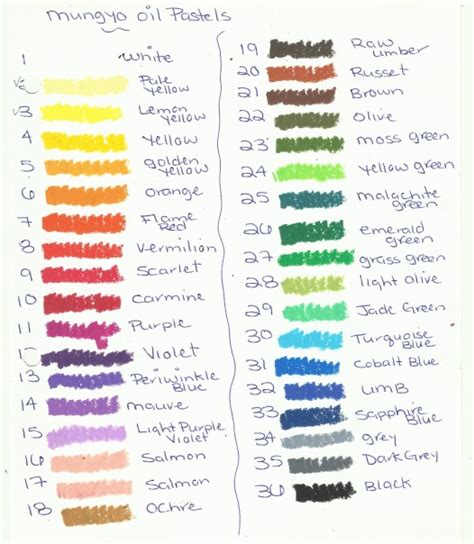 mungyo oil Pastels
1 White
Pale
yellow
3 Lemon
yellow
4 yellow
5 golden
yellow
6 orange
7 Flame
Red
8 vermilion
9 Scarlet
10 Carmine
11 Purple
Violet
13 Periwinkle
Blue
14 mauve
15 Light Purple
Violet
16 Salmon
17 Salmon
18 Ochre
19 Raw
umber
20 Russet
21 Brown
22 Olive
23 moss green
24 yellow green
25 malachite
green
26 emerald
green
27 grass green
28 light olive
29 Jade Green
30 Turquoise
Blue
31 Cobalt Blue
32 umB
33 Sapphire
Blue
34 grey
35 Dark Grey
36 Black